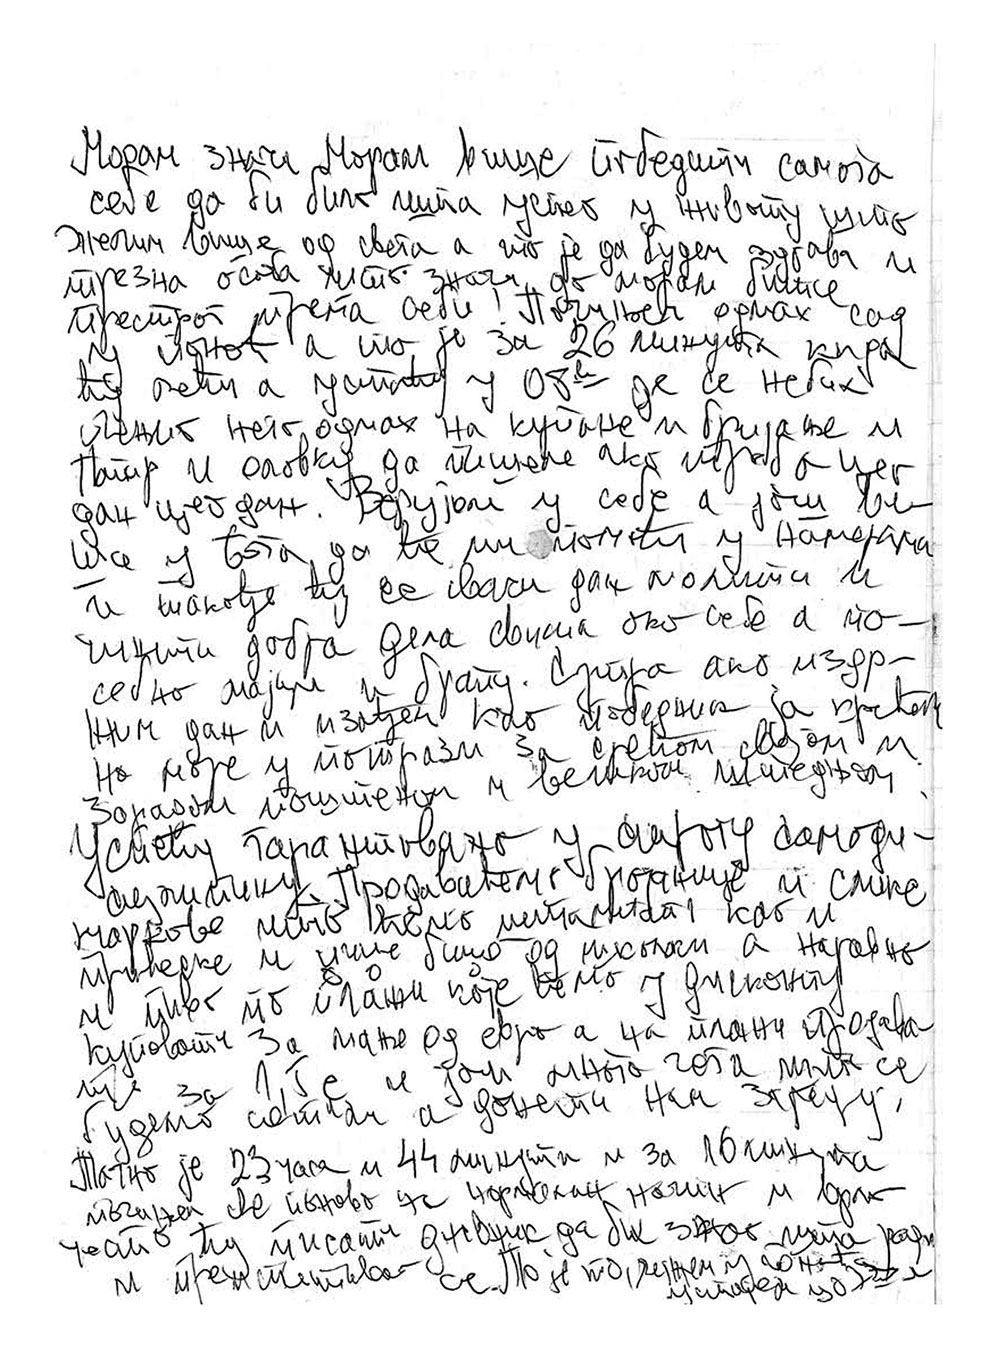 Морам значи Морам више победити самога
себе да би било шта успео у животу јупто
желим више од света а то је да будем здрава и
трезна особа што значи да морам бити
престрог према себи! Почињем одмах сад
у поноћ а то је за 26 минута кира
ћу лећи а устати у 08h де се небих
лењио него одмах на купање и бријање и
папир и оловку да пишем ако треба и цео
дан цео дан. Верујем у себе а још ви-
ше у бога да ће ми помоћи у намерама
и такође ћу се сваки дан молити и
чинити добра дела свима око себе а по-
себно мајци и брату. Сутра ако издр-
жим дан и изађем као победник ја крећем
на море у потрази за срећом бојом и
зарадом поштеном и великом штедњом
Успећу гарантовано у строгу самоди-
сциплину. Продаваћемо бројанице и слике
маркове што ћемо штампати као и
привезке и чине било од школки а наравно
и пиво по плажи које ћемо у дисконту
куповати за мање од евро а на плажи продава
ти за 1,5 е и још много тога шта се
будемо сетили а донети нам зараду,
Тачно је 23 часа и 44 минута и за 16 минута
почињем све поново на нормалан начин и врло
често ћу писати дневник да бих знао шта радим
и преиспитивао се. То је то, лежем у поноћ
устајем у 08 h